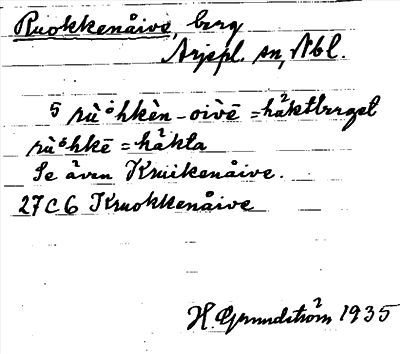 Ruokkenåive, berg
Arjepl. sn, Nbl.
5 rùo̊hkèn-oivē = håktberget
rùo̊hkē = håkta
Se även Kruikenåive.
27C6 Kruokkenåive
H. Grundström 1935